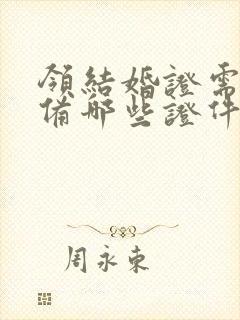 領結婚證需
備哪些證件
周永東